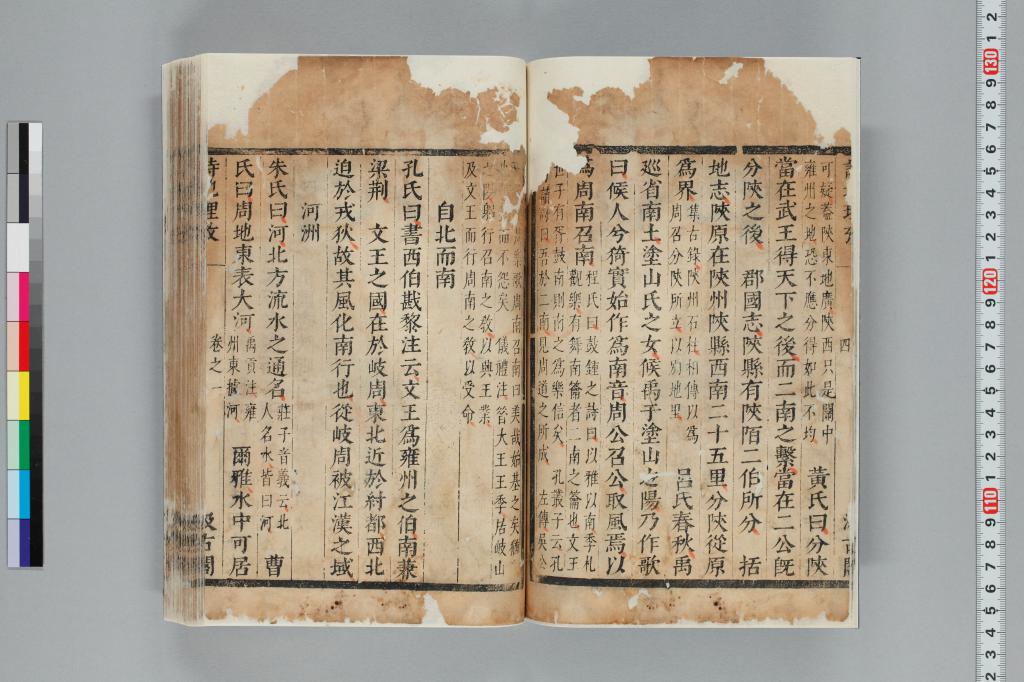 可疑蓋陝東地廣陝西只是關中
雍州之地恐不應分得如此不均
黃氏曰分陝
當在武王得天下之後而二南之繫當在二公旣
分陝之後　郡國志陝縣有陝陌二伯所分　括
地志陝原在陝州陝縣西南二十五里分陝從原
爲界
集古錄陝州石柱相傳以爲
周召分陝所立以別地里
呂氏春秋禹
廵省南土塗山氏之女候禹于塗山之陽乃作歌
曰候人兮猗實始作爲南音周公召公取風焉以
爲周南召南
程氏曰鼓鍾之詩曰以雅以南季札
觀樂有舞南籥者二南之籥也文王
世子有胥鼓南則南之爲樂信矣　孔叢子云孔
讀詩曰吾於二南見周道之所成　左傳吳公
歌周南召南曰美哉始基之矣猶
而不怨矣　儀禮注昔大王王季居岐山
之陽躬行召南之敎以興王業
及文王而行周南之敎以受命
自北而南
孔氏曰書西伯戡黎注云文王爲雍州之伯南兼
梁荆　文王之國在於岐周東北近於紂都西北
迫於戎狄故其風化南行也從岐周被江漢之域
河洲
朱氏曰河北方流水之通名
莊子音義云北
人名水皆曰河
曹
氏曰周地東表大河
禹貢注雍
州東據河
爾雅水中可居
詩地理攷
卷之一
四
汲古閣